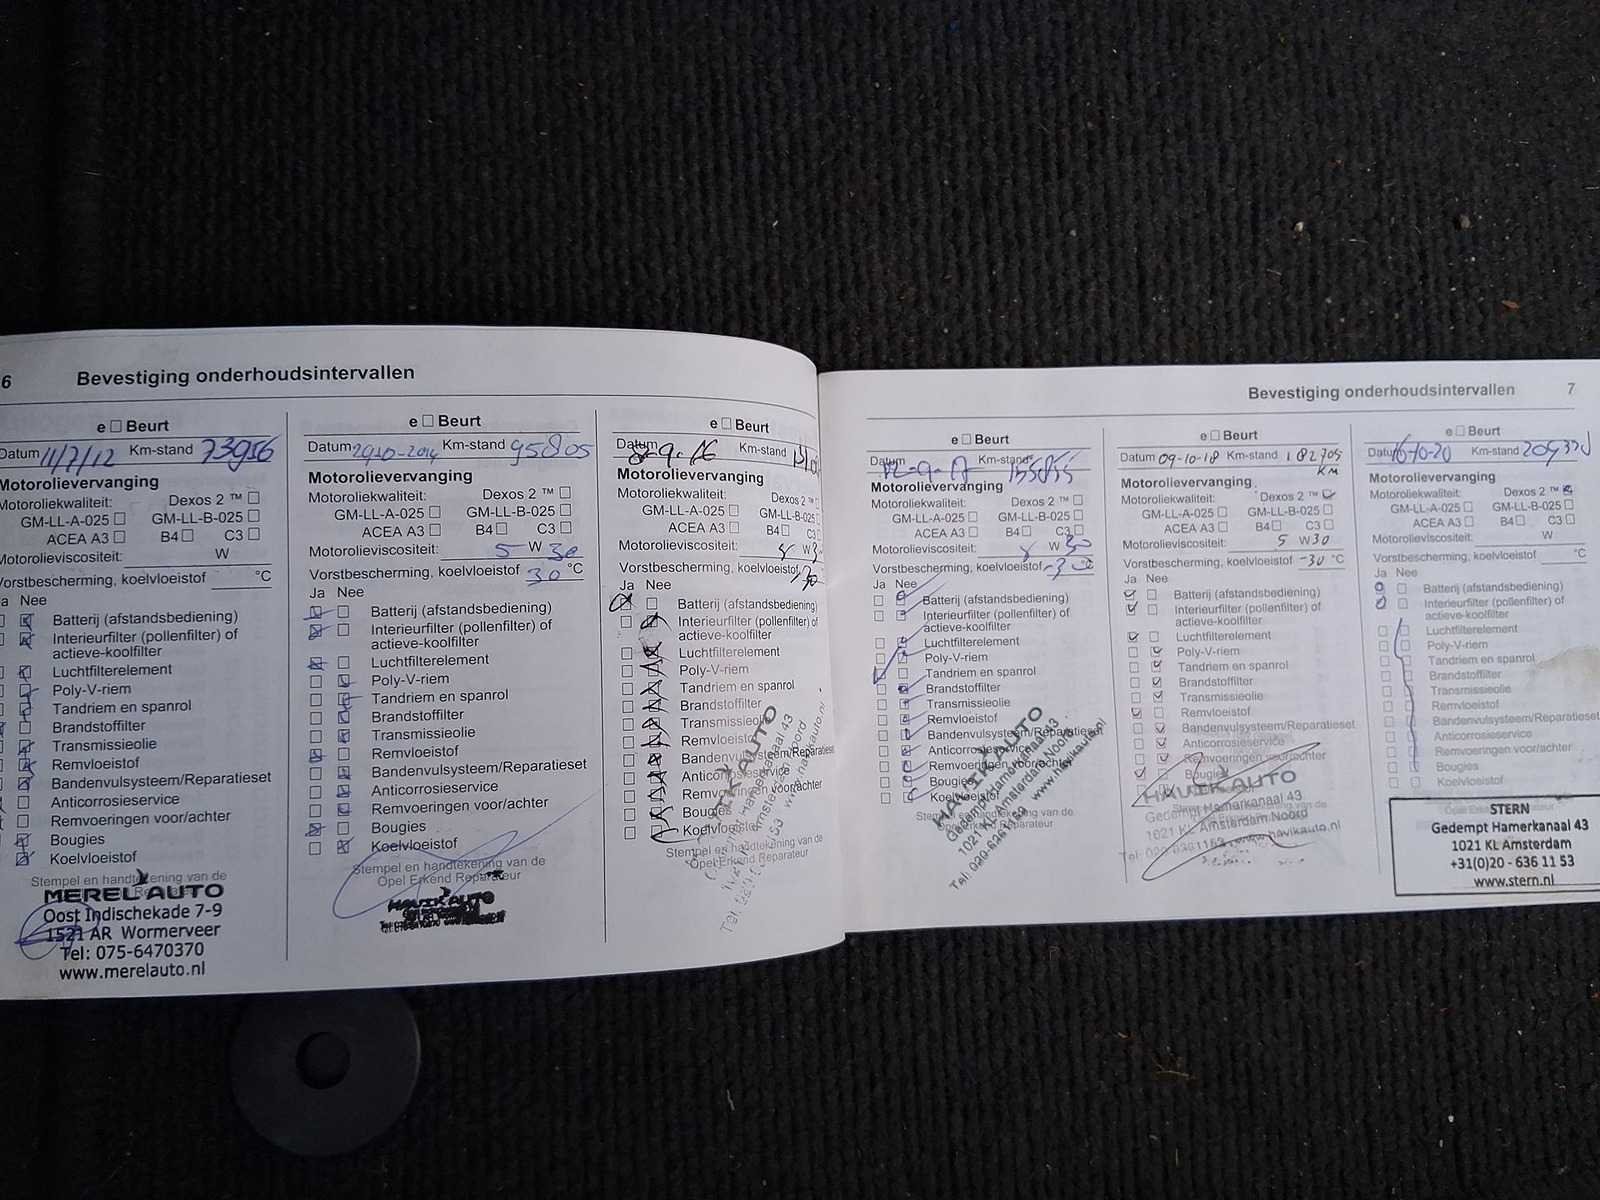 6
Bevestiging onderhoudsintervallen
e □ Beurt
Datum 11/7/12 Km-stand 73956
Motorolievervanging
Motoroliekwaliteit: Dexos 2 ™ □
GM-LL-A-025 □ GM-LL-B-025 □
ACEA A3 □ B4 □ C3 □
Motorolieviscositeit: W
Vorstbescherming, koelvloeistof °C
Ja Nee
Batterij (afstandsbediening)
Interieurfilter (pollenfilter) of
actieve-koolfilter
Luchtfilterelement
Poly-V-riem
Tandriem en spanrol
Brandstoffilter
Transmissieolie
Remvloeistof
Bandenvulsysteem/Reparatieset
Anticorrosieservice
Remvoeringen voor/achter
Bougies
Koelvloeistof
Stempel en handtekening van de
Reparateur
MEREL AUTO
Oost Indischekade 7-9
1521 AR Wormerveer
Tel: 075-6470370
www.merelauto.nl
e □ Beurt
Datum 29-10-2014 Km-stand 95805
Motorolievervanging
Motoroliekwaliteit: Dexos 2 ™ □
GM-LL-A-025 □ GM-LL-B-025 □
ACEA A3 □ B4 □ C3 □
Motorolieviscositeit: 5 W 30
Vorstbescherming, koelvloeistof 30 °C
Ja Nee
Batterij (afstandsbediening)
Interieurfilter (pollenfilter) of
actieve-koolfilter
Luchtfilterelement
Poly-V-riem
Tandriem en spanrol
Brandstoffilter
Transmissieolie
Remvloeistof
Bandenvulsysteem/Reparatieset
Anticorrosieservice
Remvoeringen voor/achter
Bougies
Koelvloeistof
Stempel en handtekening van de
Opel Erkend Reparateur
HAVIK AUTO
e □ Beurt
Datum 8-9-16 Km-stand
Motorolievervanging
Motoroliekwaliteit: Dexos 2 ™
GM-LL-A-025 □ GM-LL-B-025
ACEA A3 □ B4 □ C3
Motorolieviscositeit: 5 W 3
Vorstbescherming, koelvloeistof -30
Ja Nee
Batterij (afstandsbediening)
Interieurfilter (pollenfilter) of
actieve-koolfilter
Luchtfilterelement
Poly-V-riem
Tandriem en spanrol
Brandstoffilter
Transmissieolie
Remvloeistof
Bandenvulsysteem/Reparatieset
Anticorrosieservice
Remvoeringen voor/achter
Bougies
Koelvloeistof
Stempel en handtekening van de
Opel Erkend Reparateur
Bevestiging onderhoudsintervallen
7
e □ Beurt
Datum 12-9-17 Km-stand 155855
Motorolievervanging
Motoroliekwaliteit: Dexos 2 ™ □
GM-LL-A-025 □ GM-LL-B-025 □
ACEA A3 □ B4 □ C3 □
Motorolieviscositeit: 5 W 30
Vorstbescherming, koelvloeistof -30 °C
Ja Nee
Batterij (afstandsbediening)
Interieurfilter (pollenfilter) of
actieve-koolfilter
Luchtfilterelement
Poly-V-riem
Tandriem en spanrol
Brandstoffilter
Transmissieolie
Remvloeistof
Bandenvulsysteem/Reparatieset
Anticorrosieservice
Remvoeringen voor/achter
Bougies
Koelvloeistof
Stempel en handtekening van de
Opel Erkend Reparateur
HAVIK AUTO
Gedempt Hamerkanaal 43
1021 KL Amsterdam Noord
Tel: 020-6361153 www.havikauto.nl
e □ Beurt
Datum 09-10-18 Km-stand 182705
KM
Motorolievervanging
Motoroliekwaliteit: Dexos 2 ™
GM-LL-A-025 □ GM-LL-B-025 □
ACEA A3 □ B4 □ C3 □
Motorolieviscositeit: 5 W30
Vorstbescherming, koelvloeistof -30 °C
Ja Nee
Batterij (afstandsbediening)
Interieurfilter (pollenfilter) of
actieve-koolfilter
Luchtfilterelement
Poly-V-riem
Tandriem en spanrol
Brandstoffilter
Transmissieolie
Remvloeistof
Bandenvulsysteem/Reparatieset
Anticorrosieservice
Remvoeringen voor/achter
Bougies
HAVIK AUTO
Gedempt Hamerkanaal 43
1021 KL Amsterdam Noord
Tel: 020-6361153 www.havikauto.nl
e □ Beurt
Datum 16-10-20 Km-stand
Motorolievervanging
Motoroliekwaliteit: Dexos 2 ™
GM-LL-A-025 □ GM-LL-B-025 □
ACEA A3 □ B4 □ C3 □
Motorolieviscositeit: W
Vorstbescherming, koelvloeistof °C
Ja Nee
Batterij (afstandsbediening)
Interieurfilter (pollenfilter) of
actieve-koolfilter
Luchtfilterelement
Poly-V-riem
Tandriem en spanrol
Brandstoffilter
Transmissieolie
Remvloeistof
Bandenvulsysteem/Reparatieset
Anticorrosieservice
Remvoeringen voor/achter
Bougies
Koelvloeistof
STERN
Gedempt Hamerkanaal 43
1021 KL Amsterdam
+31(0)20 - 636 11 53
www.stern.nl